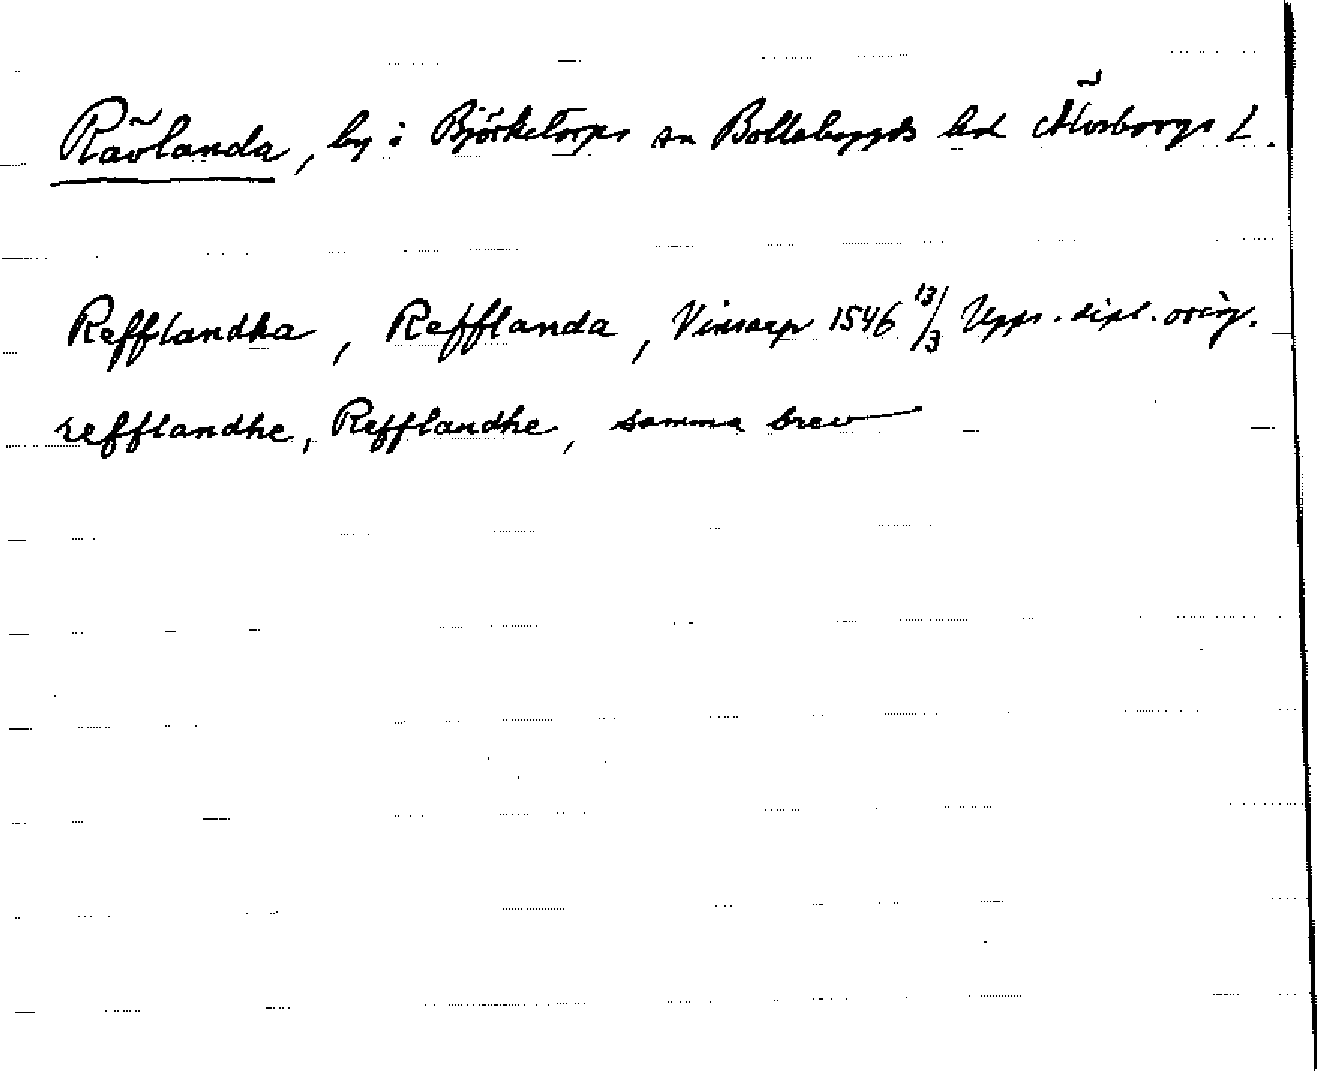 Rävlanda, by i Björketorps sn Bollebygds hd Älvsborgs L.
Refflandha, Refflanda, Vinsarp 1546 13/3 Upps. dipl. orig.
refflandhe, Refflandhe, samma brev